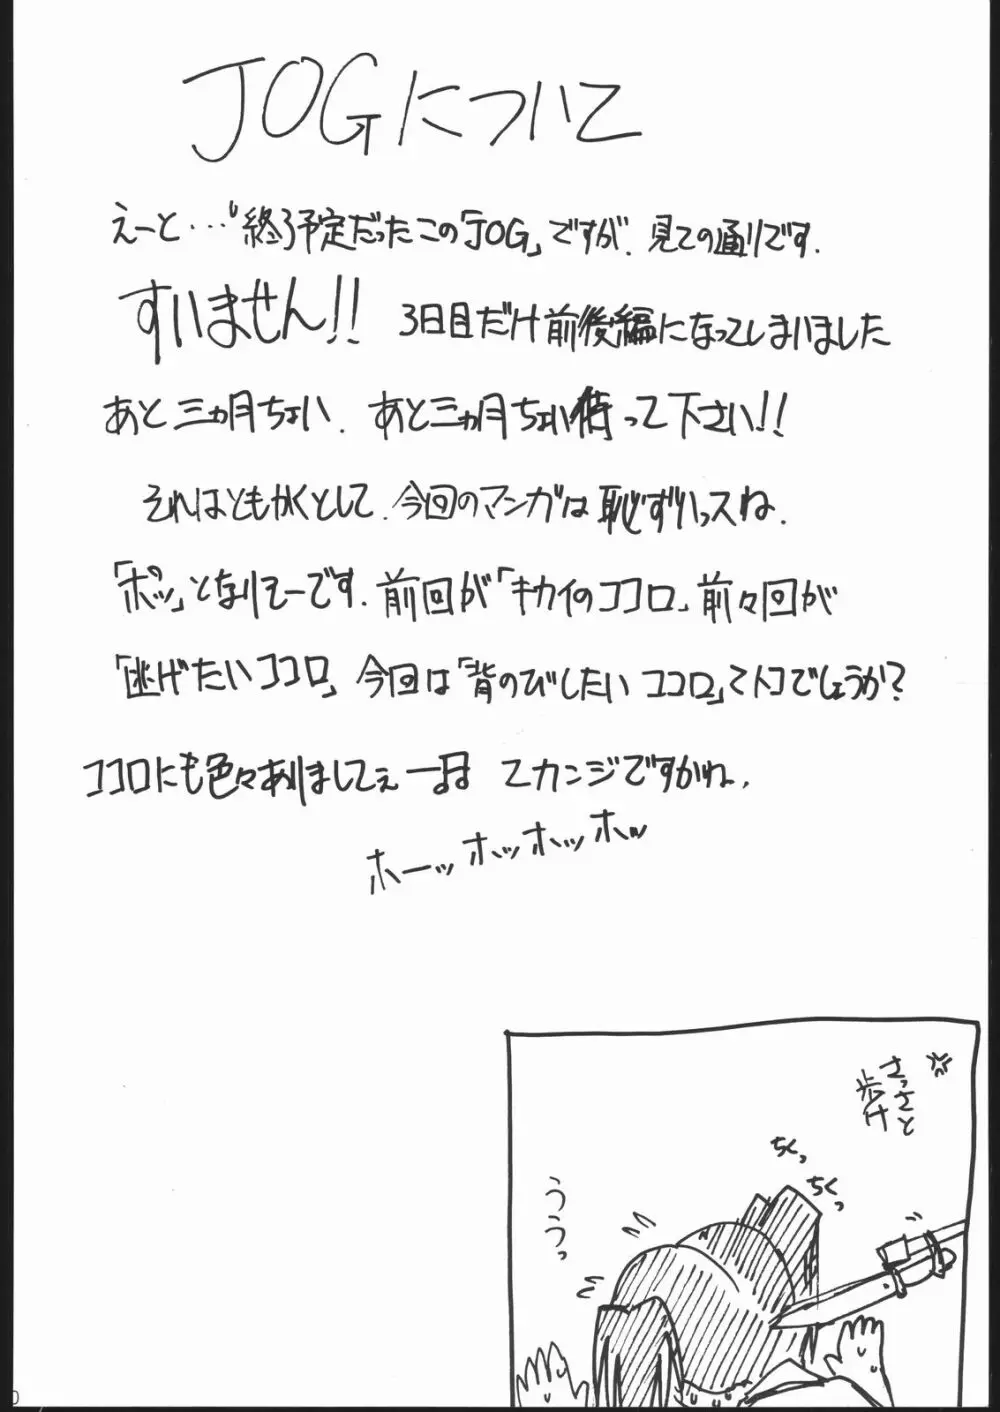 JOGについて
えーと…終了予定だったこの「JOG」ですが、見ての通りです.
すいません!! 3日目だけ前後編になってしまいました
あと三ヵ月ちょい、あと三ヵ月ちょい待って下さい!!
それはともかくとして、今回のマンガは恥ずいっスね.
「ポッ」となりそーです.前回が「キカイのココロ」前々回が
「逃げたいココロ」今回は「背のびしたいココロ」てトコでしょうか?
ココロにも色々ありましてぇー てカンジですかね.
ホーッホッホッホッ
さっさと
歩け
ちくっ
ちくっ
ううっ